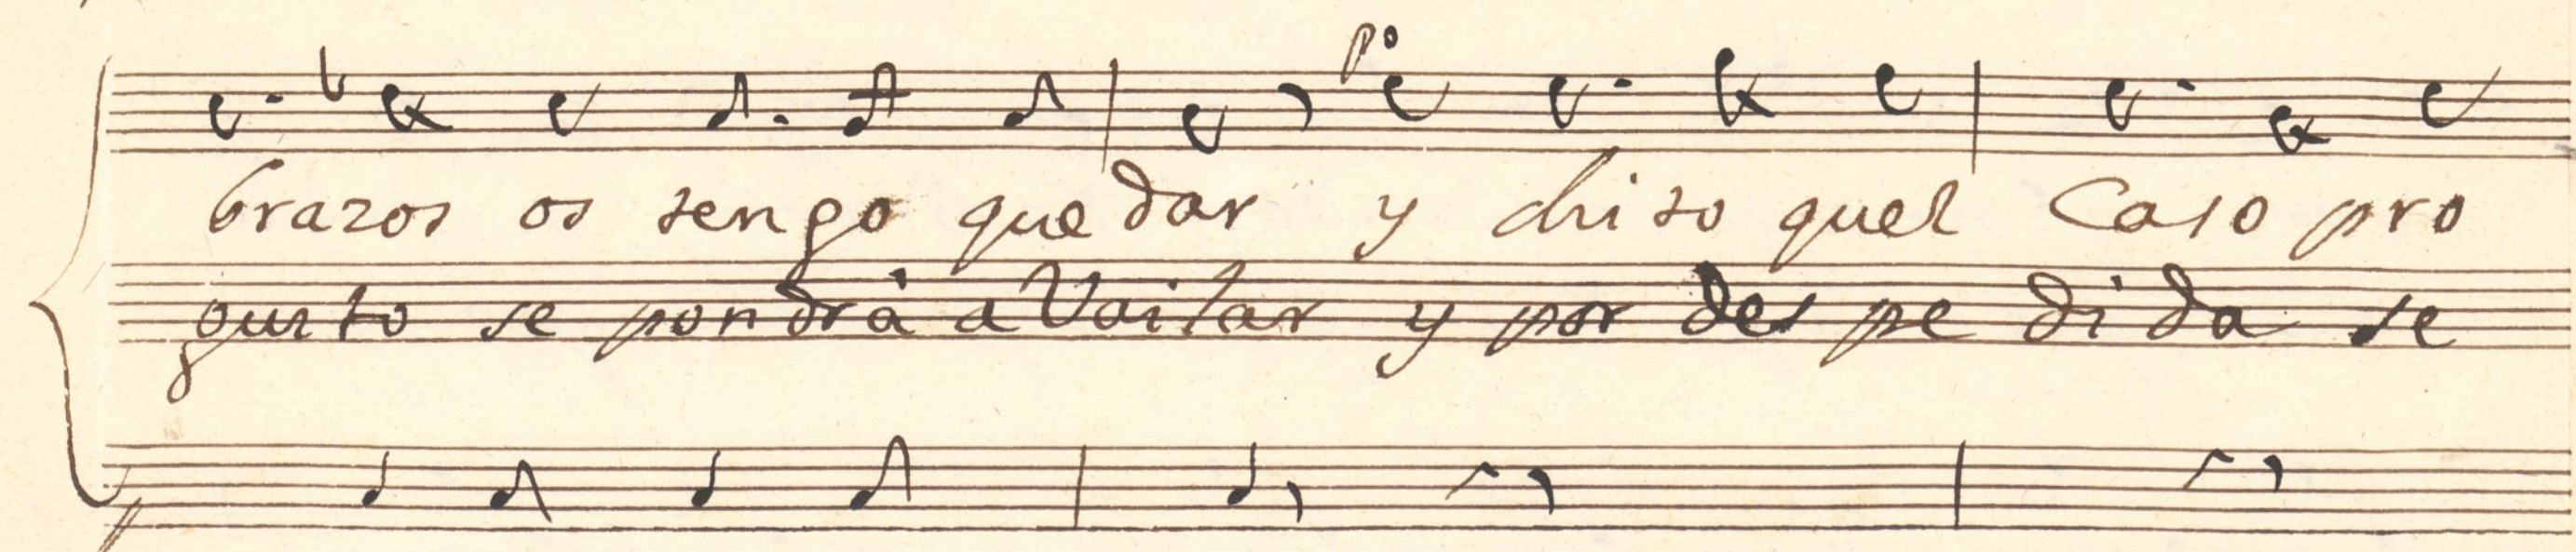 po
brazos os tengo que dar y chito quel Caso pro
gusto se pondrà a Vailar y por des pe di da se